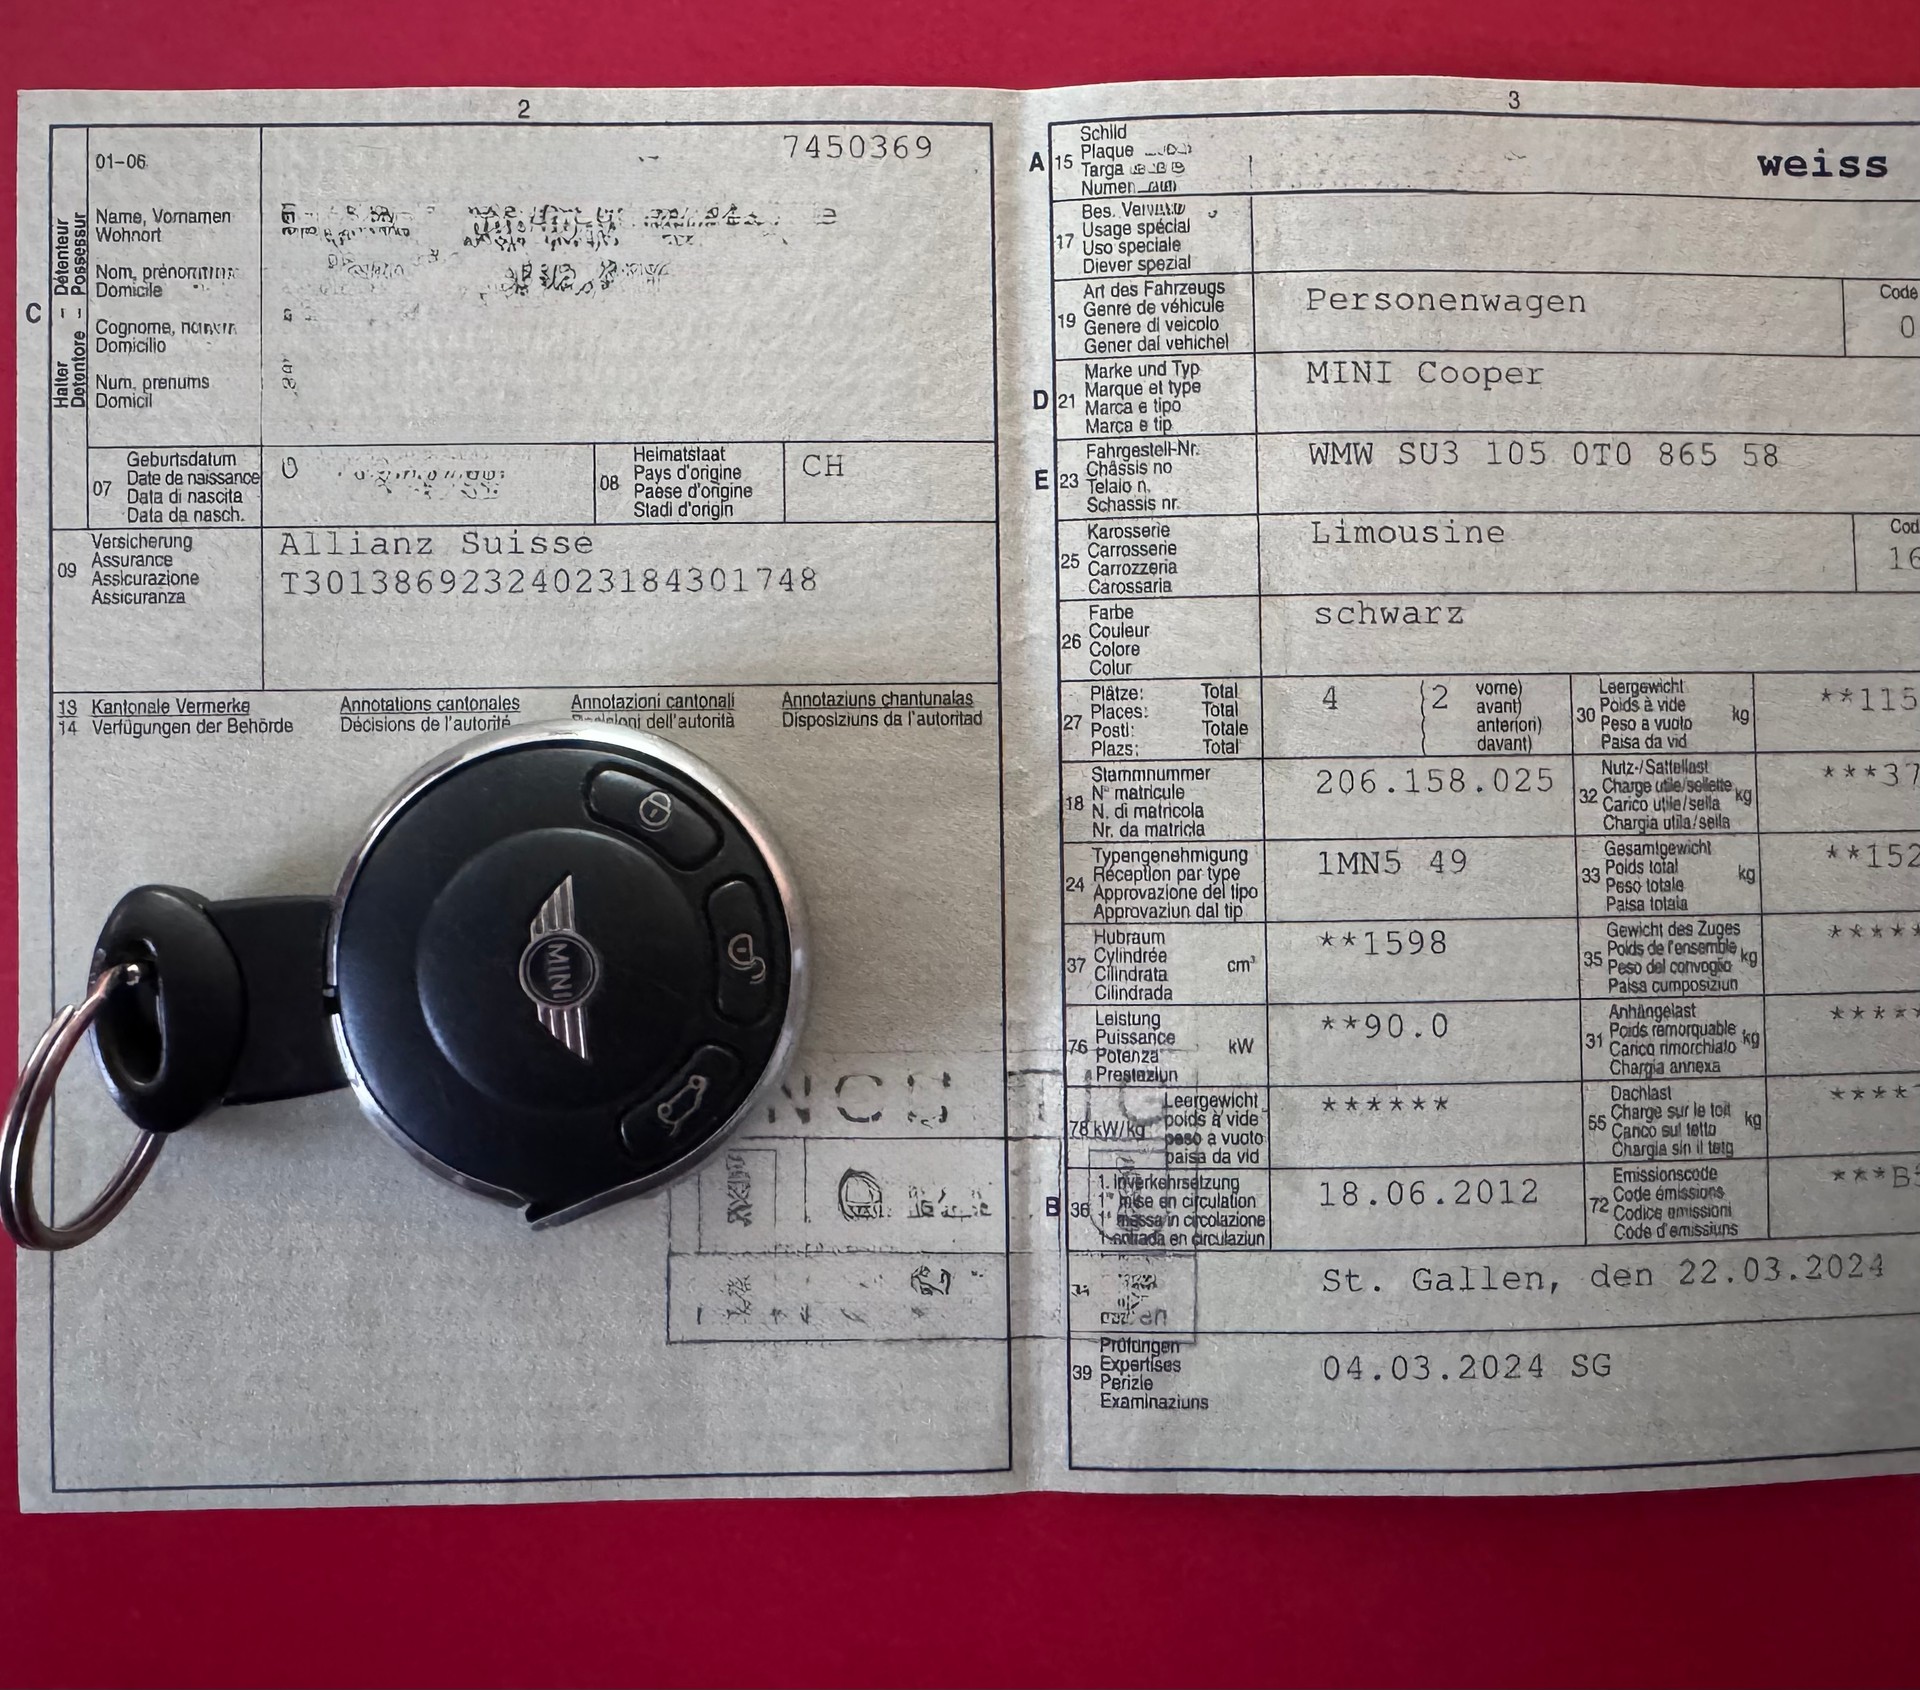 2
7450369
01-06
Name, Vornamen
Wohnort
Nom,
Domicile
Cognome,
Domicilio
Num, prenums
Domicil
C
Halter – Détenteur
Detentore – Possessur
07
Geburtsdatum
Date de naissance
Data di nascita
Data da nasch.
08
Heimatstaat
Pays d'origine
Paese d'origine
Stadi d'origin
CH
09
Versicherung
Assurance
Assicurazione
Assicuranza
Allianz Suisse
T3013869232402318430 1748
13
14
Kantonale Vermerke
Verfügungen der Behörde
Annotations cantonales
Décisions de l'autorité
Annotazioni cantonali
dell'autorità
Annotaziuns chantunalas
Disposiziuns da l'autoritad
MINI
3
A
15
Schild
Plaque
Targa
weiss
17
Bes.
Usage spécial
Uso speciale
Diever spezial
19
Art des Fahrzeugs
Genre de véhicule
Genere di veicolo
Gener dal vehichel
Personenwagen
Code
0
D
21
Marke und Typ
Marque et type
Marca e tipo
Marca e tip
MINI Cooper
E
23
Fahrgestell-Nr.
Châssis no
Telaio n.
Schassis nr.
WMW SU3 105 0T0 865 58
25
Karosserie
Carrosserie
Carrozzeria
Carossaria
Limousine
Cod
16
26
Farbe
Couleur
Colore
Colur
schwarz
27
Plätze: Total
Places: Total
Posti: Totale
Plazs: Total
4
(2
vorne)
avant)
anteriori)
davant)
30
Leergewicht
Poids à vide
Peso a vuoto
Paisa da vid
kg
**115
18
Stammnummer
N° matricule
N. di matricola
Nr. da matricla
206.158.025
32
Nutz-/Sattellast
Charge utile/sellette
Carico utile/sella
Chargia utila/sella
kg
***37
24
Typengenehmigung
Réception par type
Approvazione del tipo
Approvaziun dal tip
1MN5 49
33
Gesamtgewicht
Poids total
Peso totale
Paisa totala
kg
**152
37
Hubraum
Cylindrée
Cilindrata
Cilindrada
cm³
**1598
35
Gewicht des Zuges
Poids de l'ensemble
Peso del convoglio
Paisa cumposiziun
kg
*****
76
Leistung
Puissance
Potenza
Prestaziun
kW
**90.0
31
Anhängelast
Poids remorquable
Carico rimorchiato
Chargia annexa
kg
*****
78 kW/kg
Leergewicht
poids à vide
peso a vuoto
paisa da vid
******
55
Dachlast
Charge sur le toit
Carico sul tetto
Chargia sin il tetg
kg
****
B
36
1. Inverkehrsetzung
1re mise en circulation
1a messa in circolazione
1. entrada en circulaziun
18.06.2012
72
Emissionscode
Code émissions
Codice emissioni
Code d'emissiuns
***B
St. Gallen, den 22.03.2024
39
Prüfungen
Expertises
Perizie
Examinaziuns
04.03.2024 SG